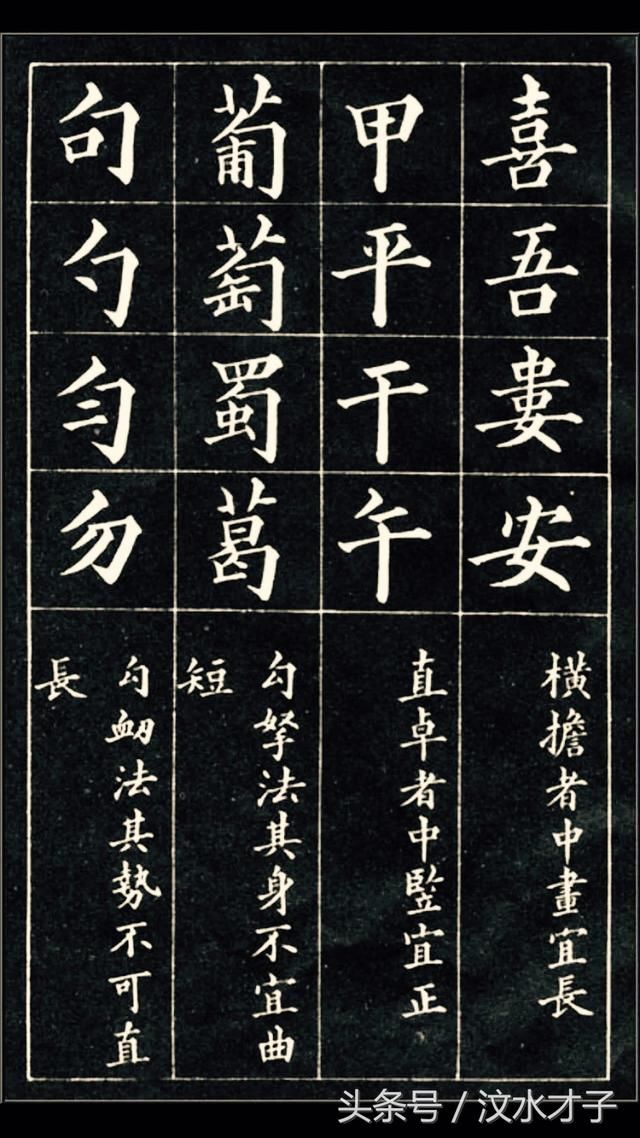 喜吾婁安
橫擔者中畫宜長
甲平干午
直卓者中竪宜正
葡萄蜀葛
勾拏法其身不宜曲
短
句勺勻勿
勾衂法其勢不可直
長
头条号 / 汶水才子